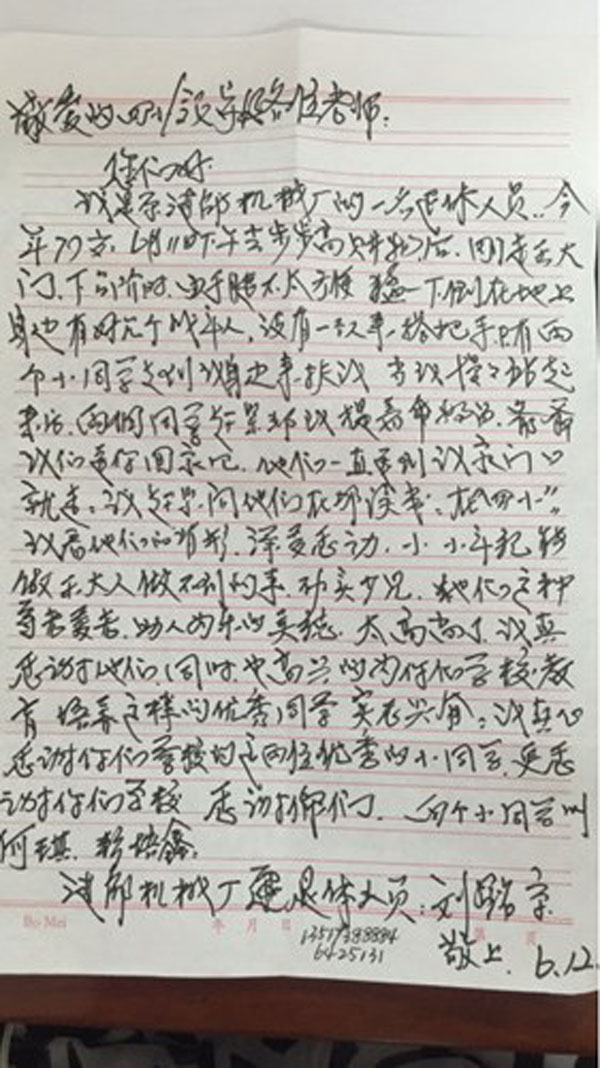 敬爱的四小领导及各位老师:
你们好
我是原涟邵机械厂的一名退休人员..今
年77岁.6月11日下午去步步高买东西后.刚走出大
门.下台阶时.由于腿不太方便 猛一下倒在地上
身边有好几个成年人,没有一个人来搭把手.只有两
个小同学走到我身边来扶我 当我慢慢站起
来后.两个同学
我们送你回家吧.他们一直送到我家门口
就走.我 问他们在哪读书:在"四小".
我看他们的背影.深受感动.小小年纪能
做出大人做不到的事.确实少见.他们这种
尊老爱老.助人为乐的 太高尚了.我真
感谢他们.同时也高兴的为你们学校.教
育培养这样的优秀同学 实在兴奋.我真心
感谢你们学校的这两位优秀的小同学.更感
谢你们学校 感谢你们. 两个小同学叫
何琪.
涟邵机械厂 退休人员:刘
13517388884
6425131
敬上. 6.12
Bo Mei
年 月 日
第 页